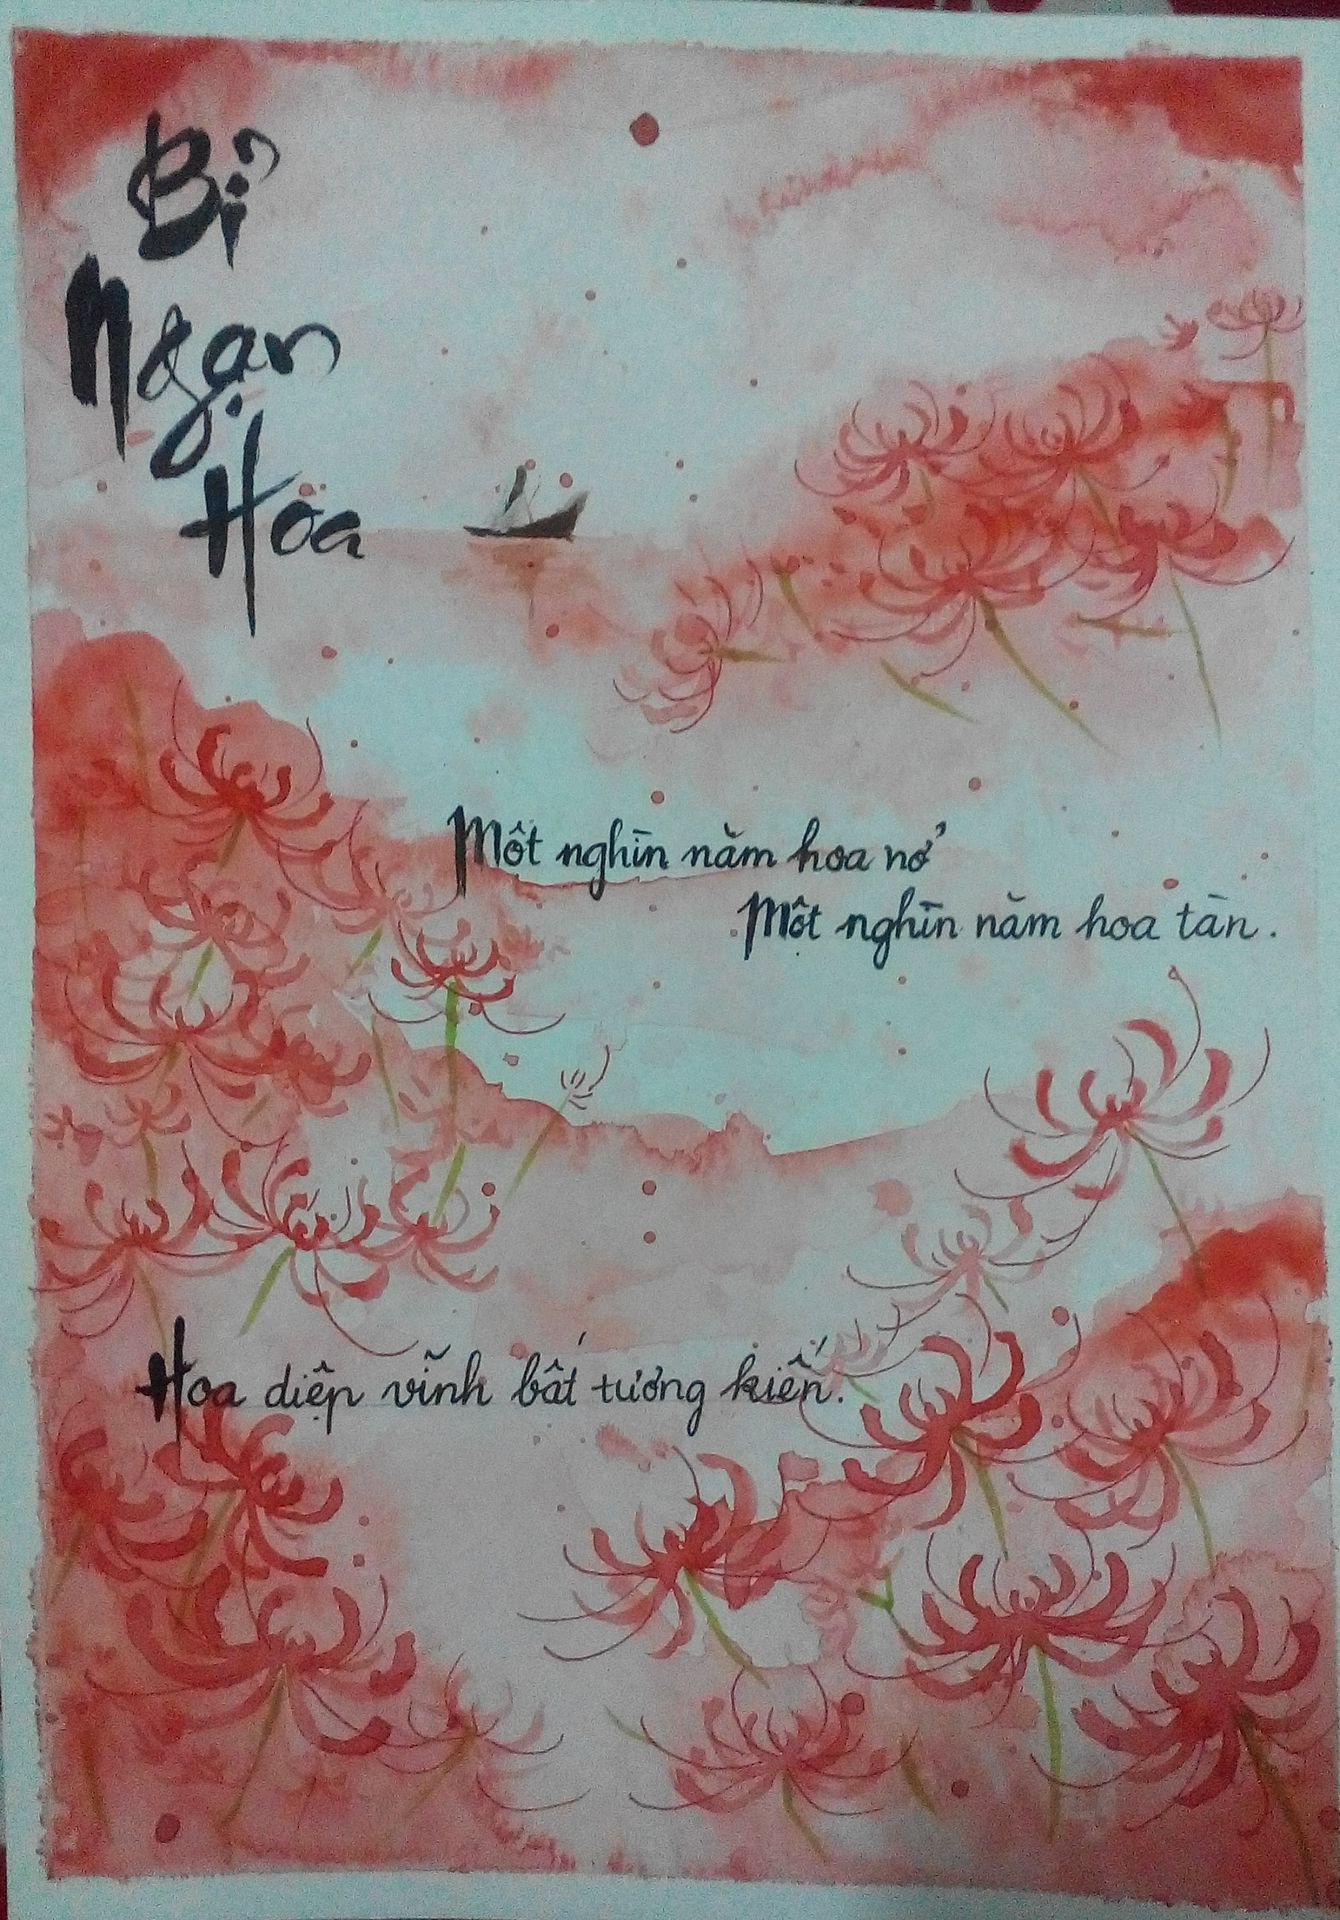 Bỉ
Ngạn
Hoa
Một nghìn năm hoa nở
Một nghìn năm hoa tàn.
Hoa diệp vĩnh bất tương kiến.